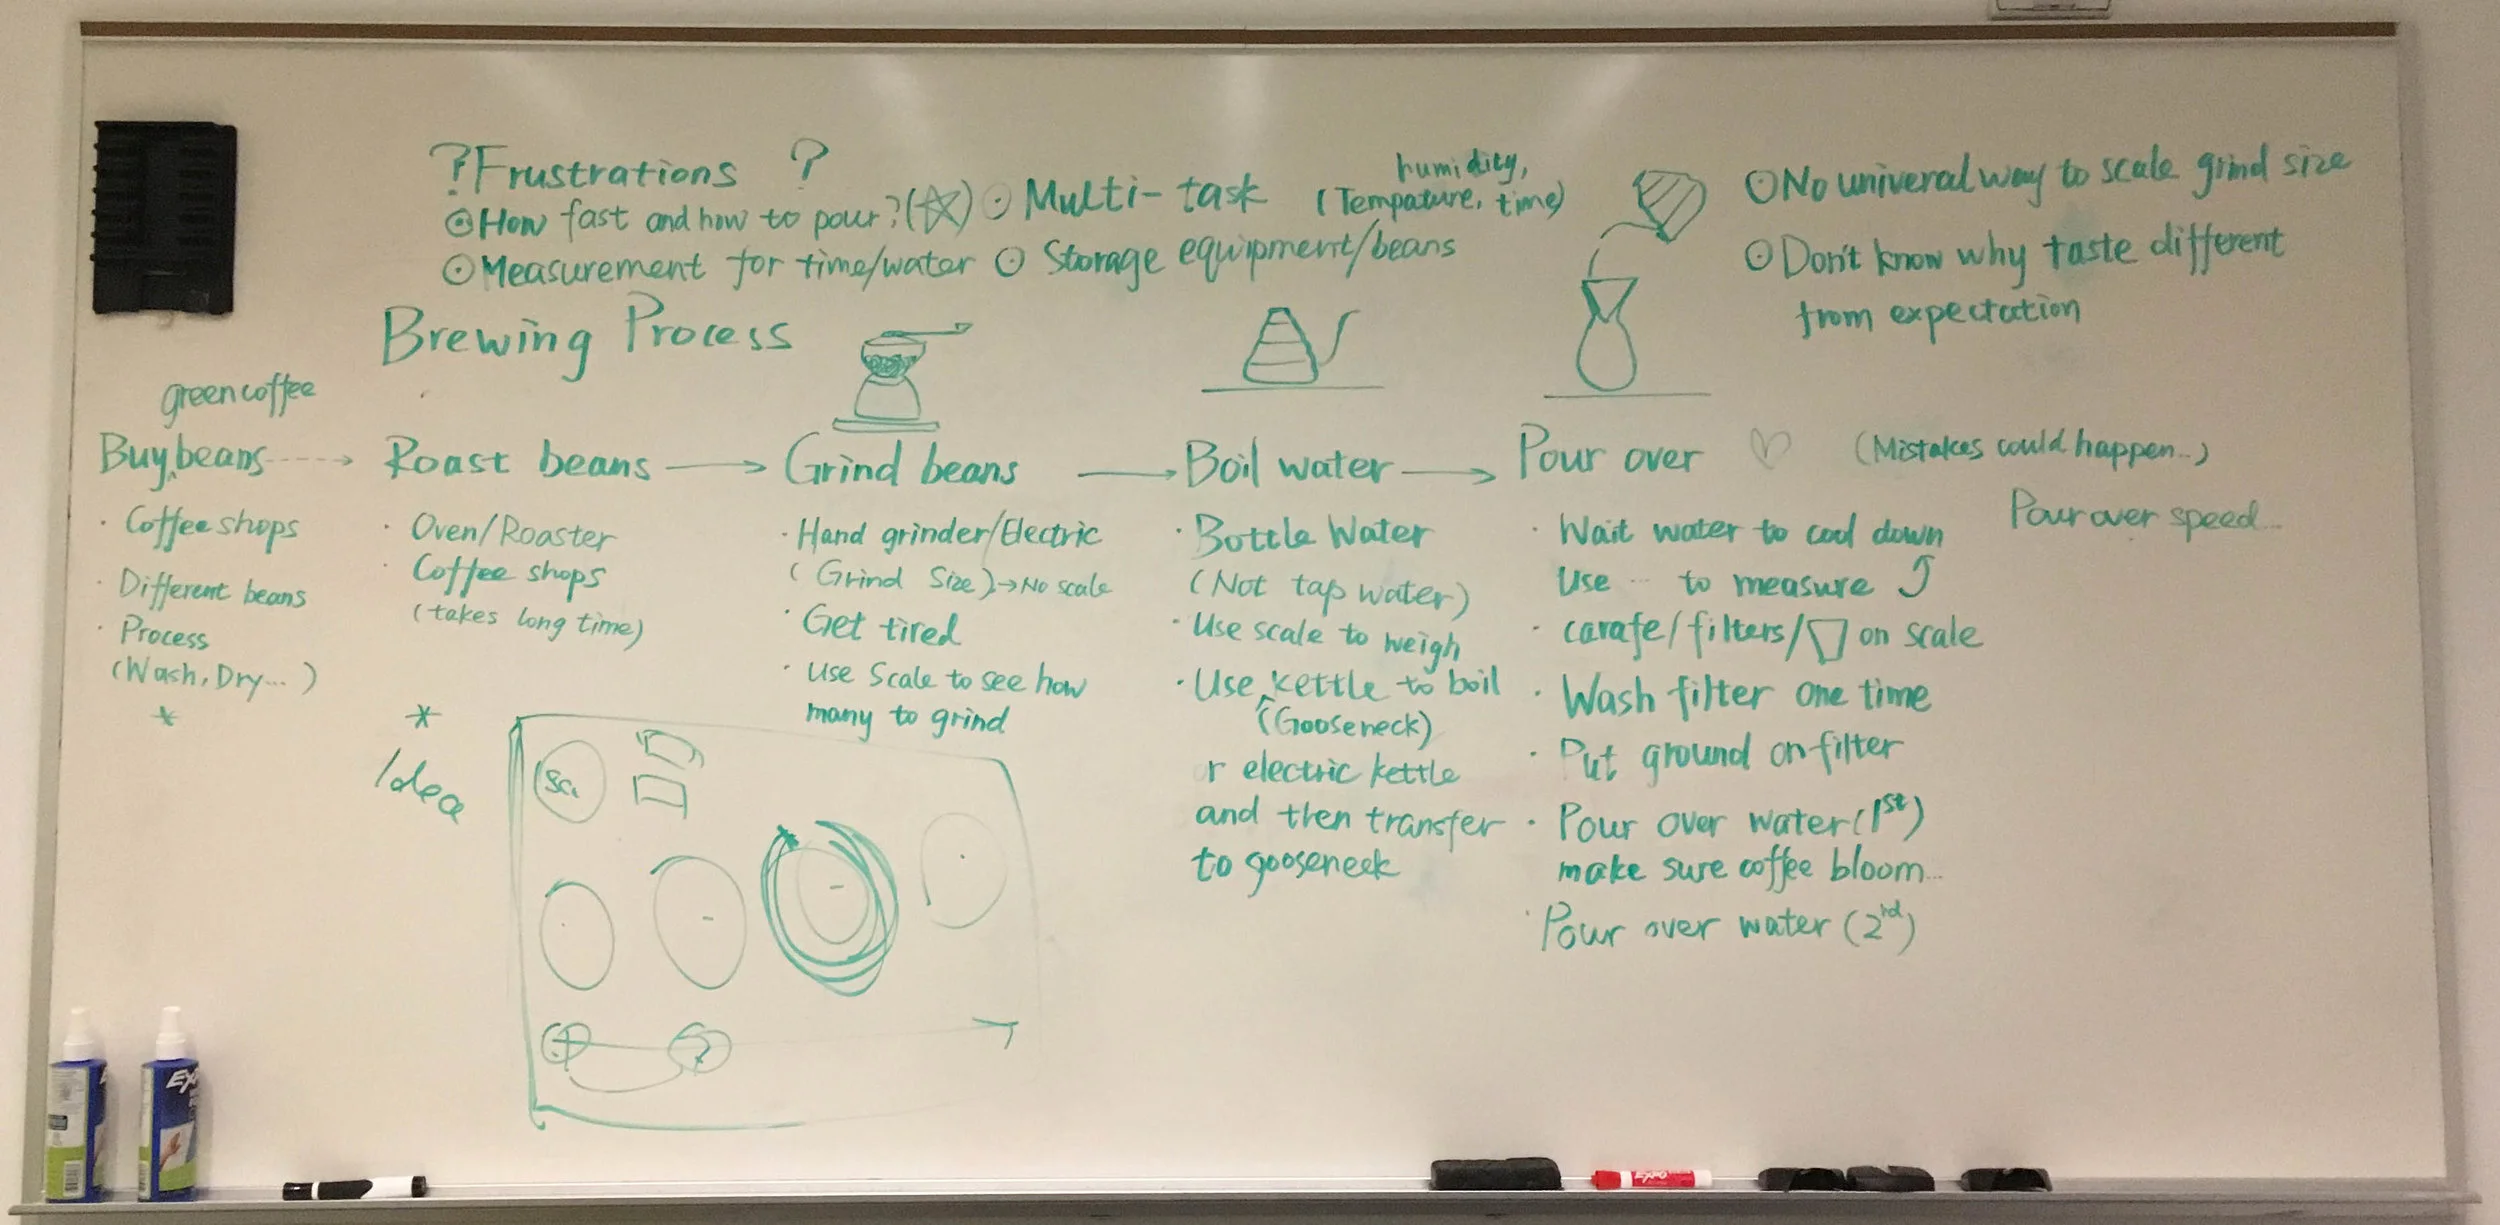 ?Frustrations ?
How fast and how to pour? (☆)
Measurement for time/water
Multi-task
humidity,
(Tempature, time)
Storage equipment/beans
No univeral way to scale grind size
Don't know why taste different
from expectation
Brewing Process
green coffee
Buy beans
· Coffee shops
· Different beans
· Process
(Wash, Dry...)
*
Roast beans
· Oven/Roaster
· Coffee shops
(takes long time)
Grind beans
· Hand grinder/Electric
(Grind Size) → No scale
· Get tired
· Use Scale to see how
many to grind
Boil water
· Bottle Water
(Not tap water)
· Use scale to weigh
· Use kettle to boil
(Gooseneck)
r electric kettle
and then transfer
to gooseneck
Pour over ♡
· Wait water to cool down
Use ... to measure
· carafe/filters/ on scale
· Wash filter one time
· Put ground on filter
· Pour over water (1st)
make sure coffee bloom...
· Pour over water (2rd)
(Mistakes could happen...)
Pour over speed...
*
Idea
EXPO